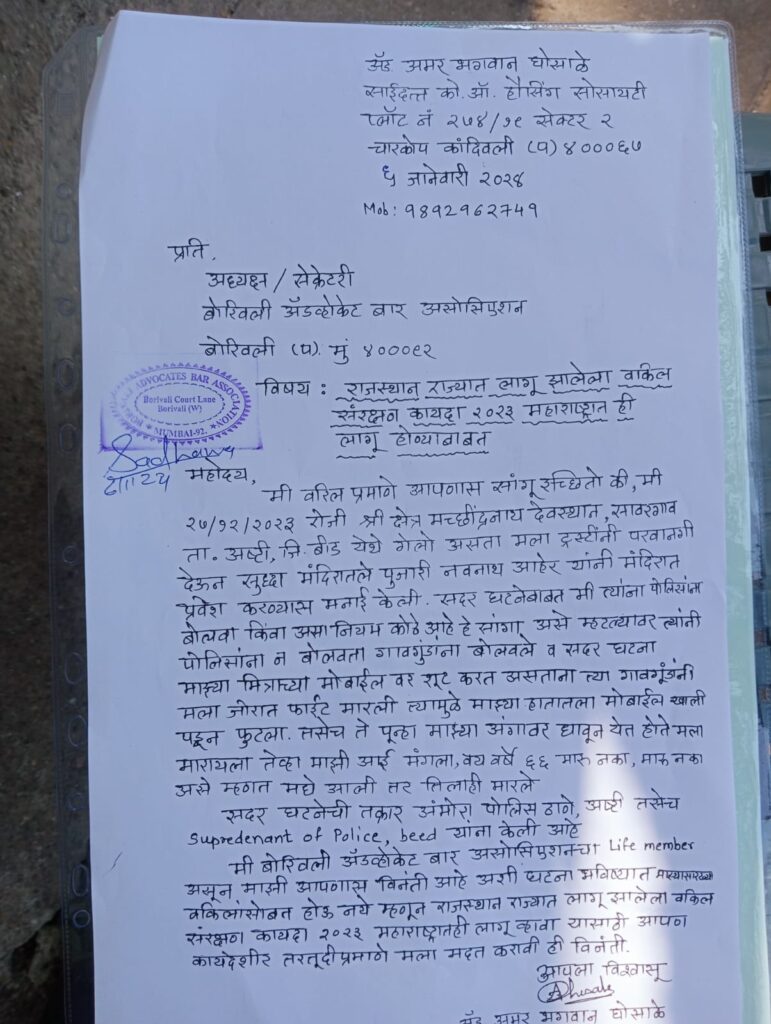 ॲड. अमर भगवान घोसाळे
साईदत्त को. ऑ. हौसिंग सोसायटी
प्लॉट नं २७४/१९ सेक्टर २
चारकोप कांदिवली (प) ४०००६७
६ जानेवारी २०२४
Mob: 9892962749
प्रति,
अध्यक्ष / सेक्रेटरी
बोरिवली ॲडव्होकेट बार असोसिएशन
बोरिवली (प). मुं ४०००९२
ADVOCATES BAR ASSOCIATION
Borivali Court Lane
Borivali (W)
MUMBAI-92.
विषय : राजस्थान राज्यात लागू झालेला वकिल
संरक्षण कायदा २०२३ महाराष्ट्रात ही
लागू होण्याबाबत
महोदय,
मी वरिल प्रमाणे आपणास सांगू इच्छितो की, मी
२७/१२/२०२३ रोजी श्री क्षेत्र मच्छींद्रनाथ देवस्थान, सावरगाव
ता. अष्टी, जि. बीड येथे गेलो असता मला ट्रस्टींनी परवानगी
देऊन सुध्दा मंदिरातले पुजारी नवनाथ आहेर यांनी मंदिरात
प्रवेश करण्यास मनाई केली. सदर घटनेबाबत मी त्यांना पोलिसांना
बोलवा किंवा असा नियम कोठे आहे हे सांगा असे म्हटल्यावर त्यांनी
पोलिसांना न बोलवता गावगुंडांना बोलवले व सदर घटना
माझ्या मित्राच्या मोबाईल वर शूट करत असताना त्या गावगूंडांनी
मला जोरात फाईट मारली त्यामुळे माझ्या हातातला मोबाईल खाली
पडून फुटला. तसेच ते पून्हा माझ्या अंगावर धावून येत होते मला
मारायला तेव्हा माझी आई मंगला, वय वर्षे ६६ मारू नका, मारू नका
असे म्हणत मधे आली तर तिलाही मारले
सदर घटनेची तक्रार अंमोरा पोलिस ठाणे, अष्टी तसेच
Supredenant of Police, beed यांना केली आहे
मी बोरिवली ॲडव्होकेट बार असोसिएशनचा Life member
असून माझी आपणास विनंती आहे अशी घटना भविष्यात माझ्यासारख्या
वकिलांसोबत होऊ नये म्हणून राजस्थान राज्यात लागू झालेला वकिल
संरक्षण कायदा २०२३ महाराष्ट्रातही लागू व्हावा यासाठी आपण
कायदेशीर तरतूदीप्रमाणे मला मदत करावी ही विनंती.
आपला विश्वासू
ॲड. अमर भगवान घोसाळे